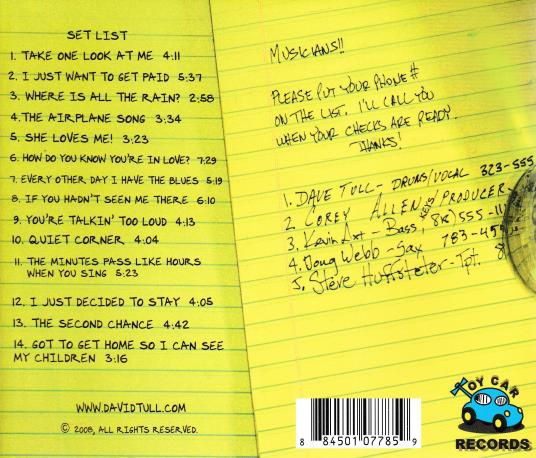 SET LIST
1. TAKE ONE LOOK AT ME 4:11
2. I JUST WANT TO GET PAID 5:37
3. WHERE IS ALL THE RAIN? 2:58
4. THE AIRPLANE SONG 3:34
5. SHE LOVES ME! 3:23
6. HOW DO YOU KNOW YOU'RE IN LOVE? 7:29
7. EVERY OTHER DAY I HAVE THE BLUES 5:19
8. IF YOU HADN'T SEEN ME THERE 6:10
9. YOU'RE TALKIN' TOO LOUD 4:13
10. QUIET CORNER 4:04
11. THE MINUTES PASS LIKE HOURS
WHEN YOU SING 5:23
12. I JUST DECIDED TO STAY 4:05
13. THE SECOND CHANCE 4:42
14. GOT TO GET HOME SO I CAN SEE
MY CHILDREN 3:16
WWW.DAVIDTULL.COM
© 2008, ALL RIGHTS RESERVED.
MUSICIANS!!
PLEASE PUT YOUR PHONE #
ON THE LIST. I'LL CALL YOU
WHEN YOUR CHECKS ARE READY.
THANKS!
1. DAVE TULL - DRUMS/VOCAL 323-555
2. COREY ALLEN / PRODUCER
3. Kevin Axt - Bass, 818) 555-11
4. Doug Webb - Sax 783-455
5. Steve Huffsteter - Tpt. 8
8 84501 07785 9
TOY CAR
RECORDS